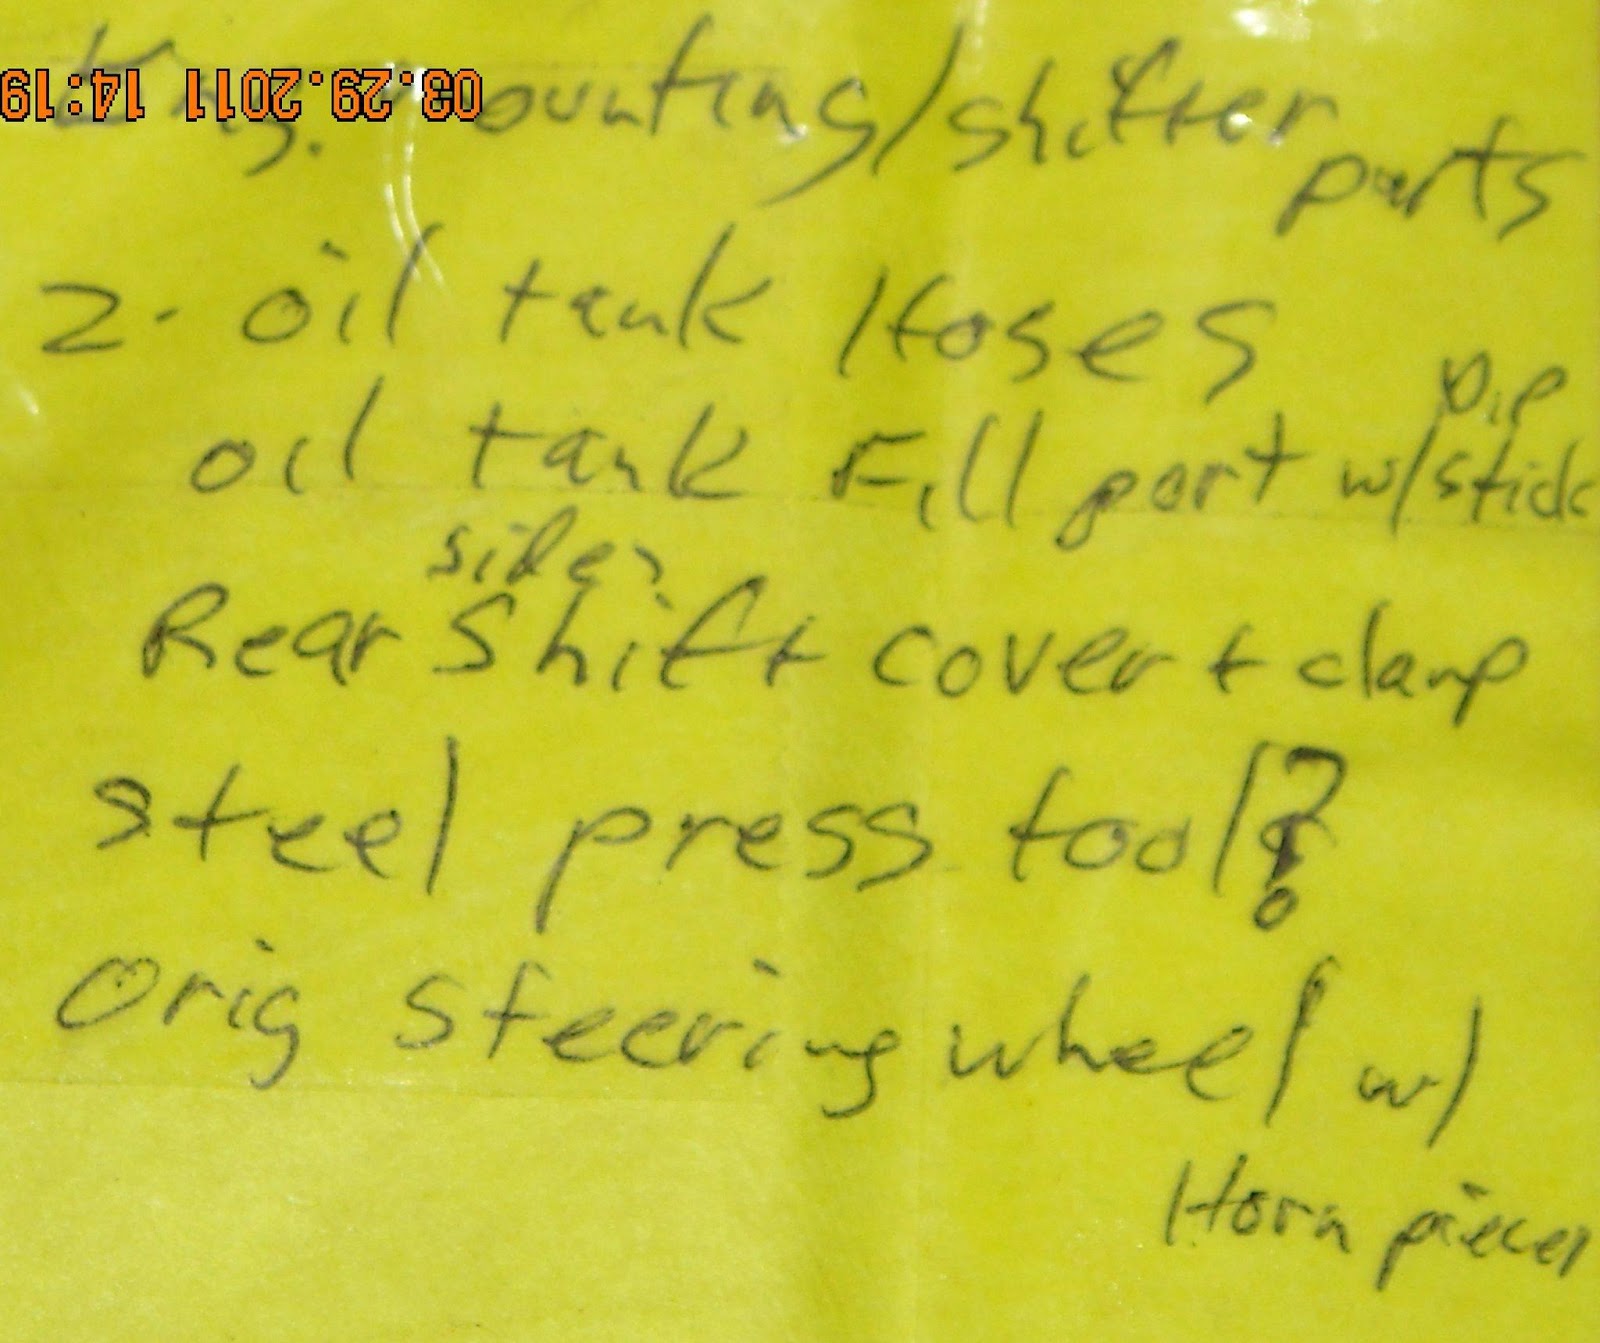 03.29.2011 14:19
ounting/shifter
parts
2- oil tank Hoses
oil tank Fill port w/ Dip
stick
side?
Rear Shift cover + clamp
steel press tool?
Orig steering wheel w/
Horn pieces